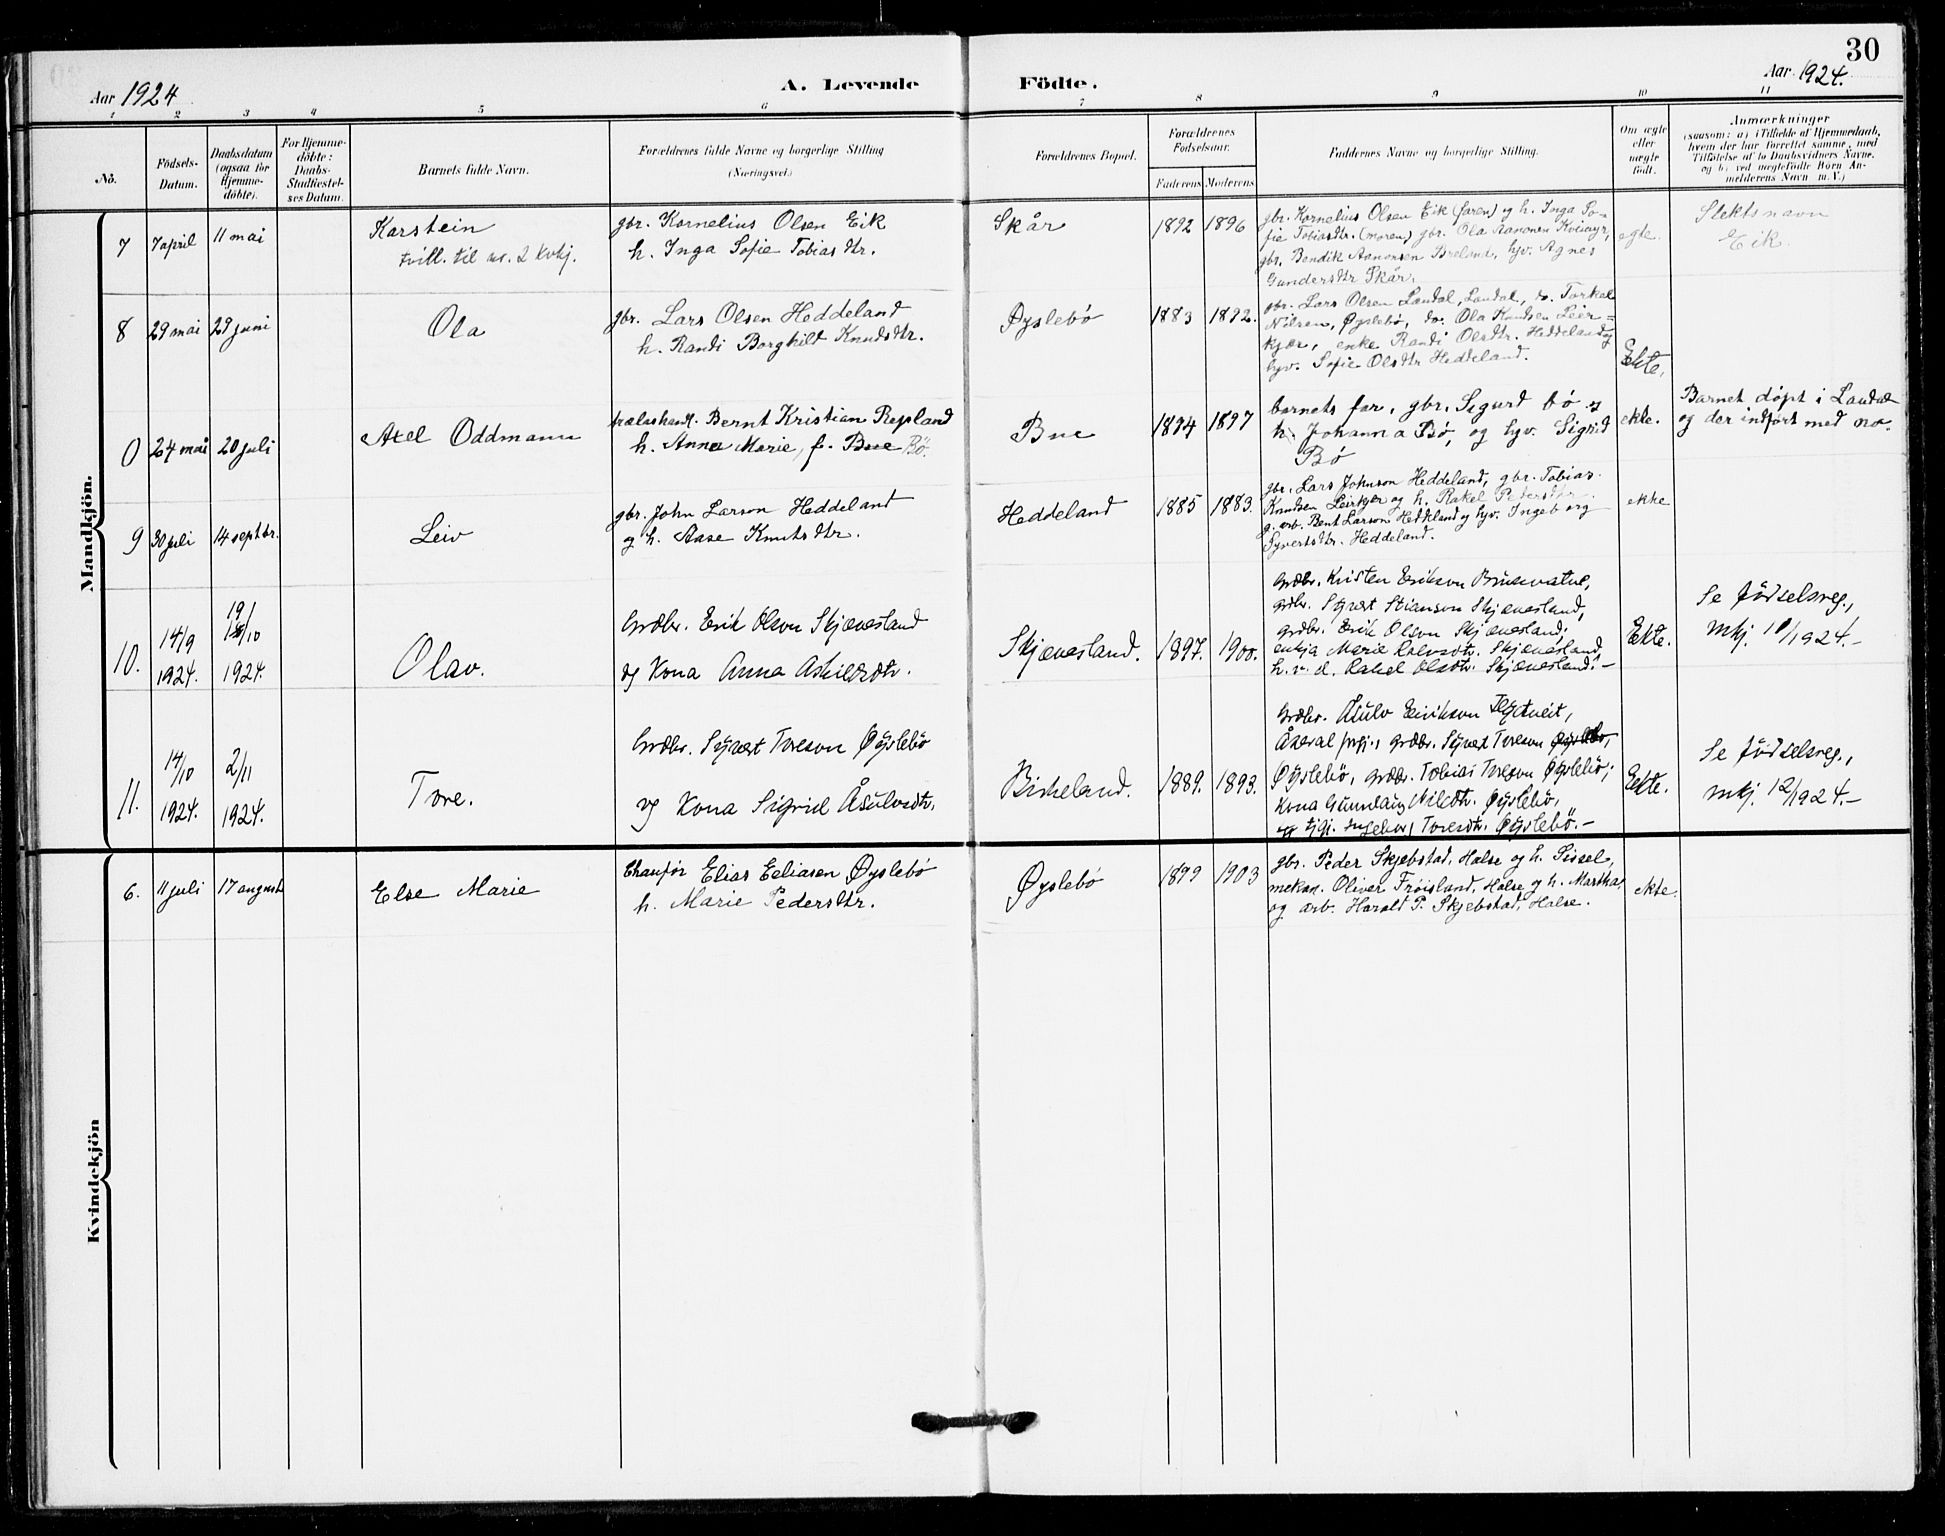 30
Aar 1924 A. Levende Födte. Aar 1924.
1 2 3 4 5 6 7 8 9 10 11
No.
Födsels-
Datum.
Daabsdatum
(ogsaa for
Hjemme-
döbte).
For Hjemme-
döbte:
Daabs-
Stadfæstel-
ses Datum.
Barnets fulde Navn.
Forældrenes fulde Navne og borgerlige Stilling
(Næringsvei.)
Forældrenes Bopæl.
Forældrenes
Fødselsaar.
Faderens Moderens
Faddernes Navne og borgerlige Stilling.
Om ægte
eller
uægte
født.
Anmærkninger
(saasom: a) i Tilfælde af Hjemmedaab,
hvem der har forrettet samme, med
Tilföielse af to Daabsvidners Navne,
og b) ved uægtefödte Börn An-
melderens Navn m. V.)
Mandkjön.
7 7 april 11 mai
Karstein
tvill. til nr. 2 kvkj.
gbr. Kornelius Olsen Eik
h. Inga Sofie Tobiasdtr.
Skår 1892 1896
gbr. Kornelius Olsen Eik (faren) og h. Inga So-
fie Tobiasdtr. (moren) gbr. Ola Aanonsen
gbr. Bendik Aanonsen Breland, hyv. Agnes
Gundersdtr Skår.
egte.
Slektsnavn
Eik.
8 29 mai 29 juni
Ola
gbr. Lars Olsen Heddeland
h. Randi Borghild Knudsdtr.
Øyslebø 1883 1892.
gbr. Lars Olsen Laudal, Laudal, do. Torkel
Nilsen, Øyslebø, do. Ola Knudsen Leir-
kjær, enke Randi Olsdtr. Heddeland og
hyv. Sofie Olsdtr Heddeland.
Ekte.
0 24 mai 20 juli
Axel Oddmann
trælasthandl. Bernt Kristian Repland
h. Anna Marie, f. Bue Bø.
Bue 1894 1897
barnets far, gbr. Sigurd Bø og
h. Johanna Bø, og hyv. Sigrid
Bø
ekte.
Barnet døpt i Laudal
og der indført med no.
9 30 juli 14 septbr.
Leiv
gbr. John Larson Heddeland
og h. Aase Knutsdtr.
Heddeland 1885 1883.
gbr. Lars Johnson Heddeland, gbr. Tobias
Knudsen Leirkjær og h. Rakel Pedersdtr.
g. arb. Bent Larson Heddeland og hyv. Ingeborg
Syvertsdtr. Heddeland.
ekte
10. 14/9 1924. 19/10 1924.
Olav.
Grdbr. Eirik Olson Skjævesland
og Kona Anna Askildsdtr.
Skjævesland. 1897. 1900.
Grdbr. Kristen Eirikson
grdbr. Syvert Stianson Skjævesland,
grdbr. Eirik Olson Skjævesland,
enkja Marie Salvesdtr. Skjævesland,
h. v. d. Rakel Olsdtr. Skjævesland.-
Ekte.
Se fødselsreg.,
mkj. 10/1924.-
11. 14/10 1924. 2/11 1924.
Tore.
Grdbr. Syvert Toreson Øyslebø
og Kona Sigrid Åsulvsdtr.
Birkeland. 1889. 1893.
Grdbr. Åsulv Eivikson
Åseral prgj., grdbr. Syvert Toreson Øyslebø,
Øyslebø, grdbr. Tobias Toreson Øyslebø;
Kona Gunnlaug Nilsdtr. Øyslebø,
og Ingeborg Toresdtr. Øyslebø.-
Ekte.
Se fødselsreg.,
mkj. 12/1924.-
Kvindekjön
6. 11 juli 17 august
Else Marie
Chauffør Elias Eeliasen Øyslebø
h. Marie Pedersdtr.
Øyslebø 1899 1903
gbr. Peder Skjebstad, Halse og h. Sissel,
mekan. Oliver Frøisland, Halse og h. Martha,
og arb. Harald P. Skjebstad, Halse.
ekte.